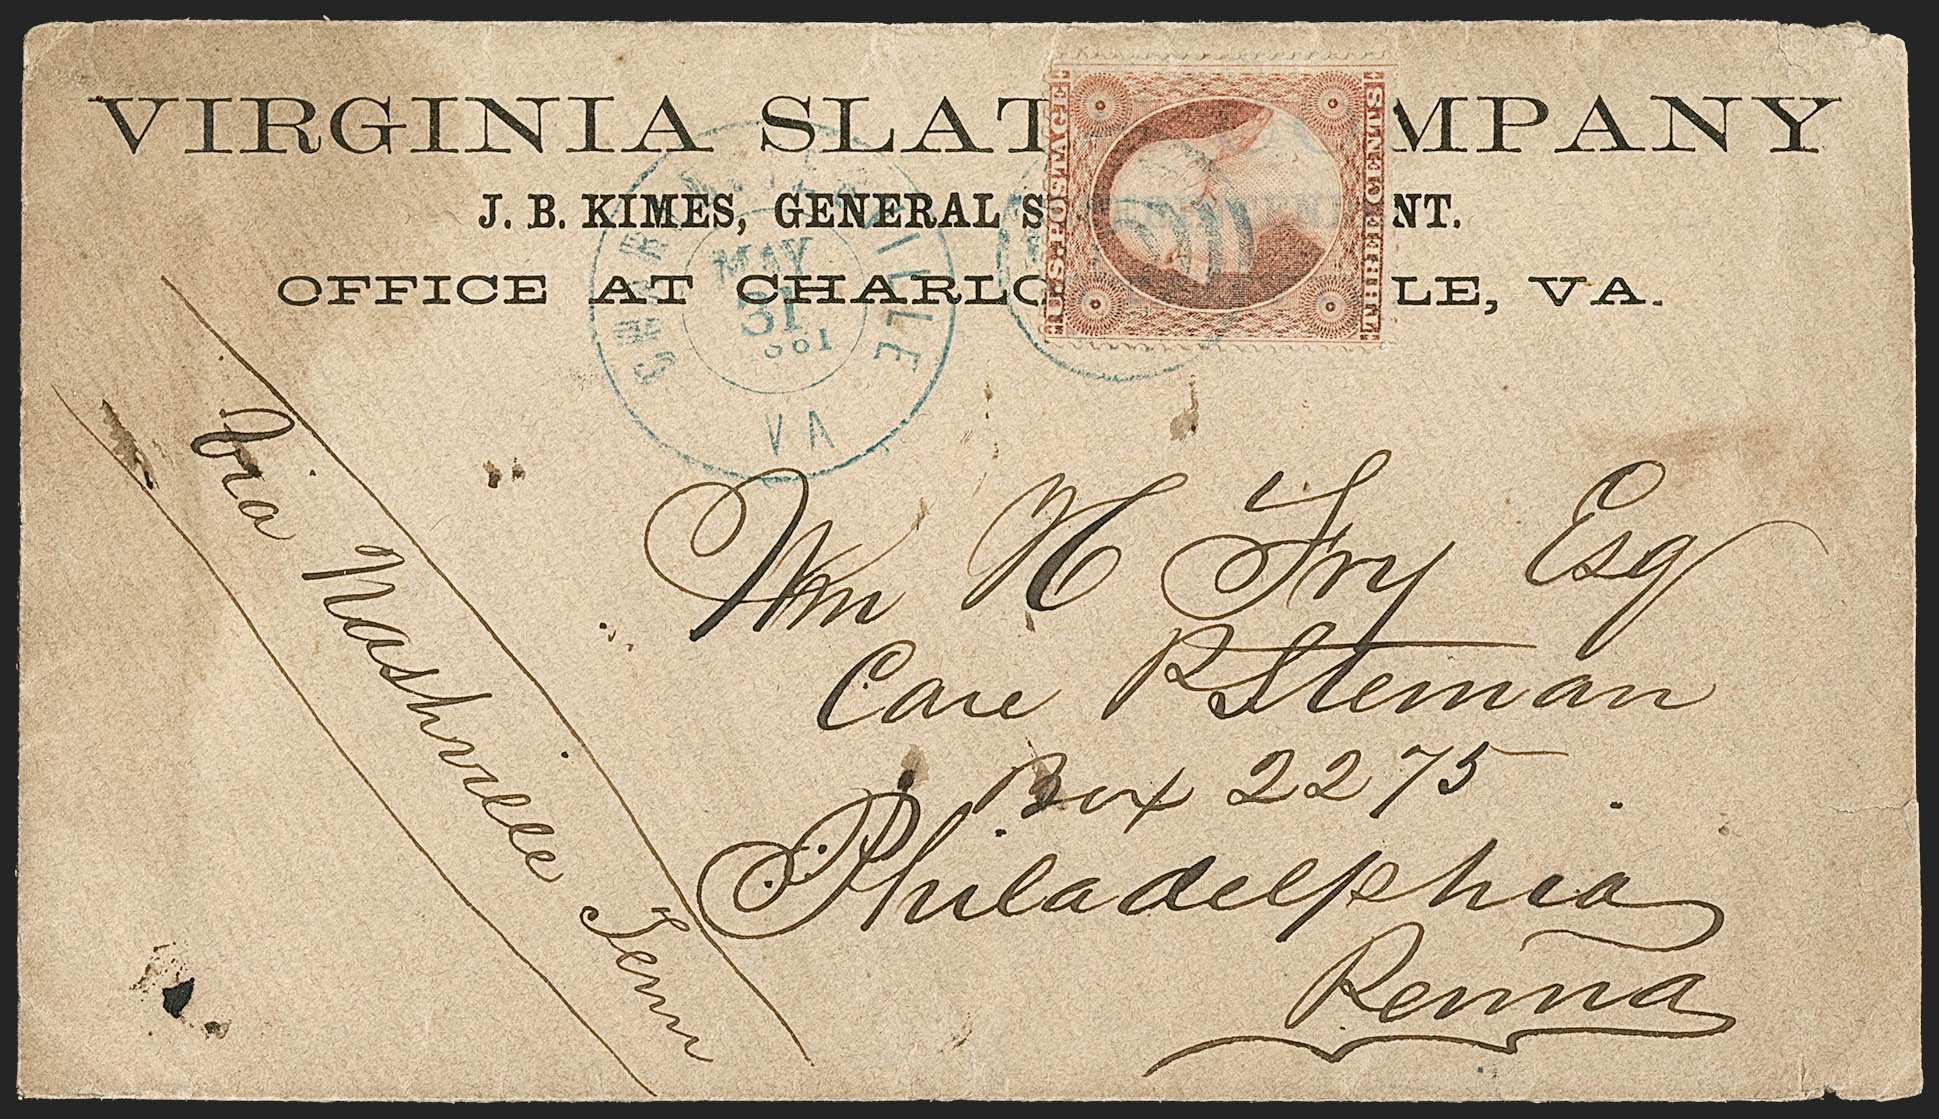 VIRGINIA SLAT MPANY
J. B. KIMES, GENERAL S NT.
OFFICE AT CHARLO LE, VA.
U.S. POSTAGE
THREE CENTS
CHAR VILLE
MAY
31
1861
VA
Via Nashville Tenn
Wm H Fry Esq
Care P Steman
Box 2275
Philadelphia
Penna